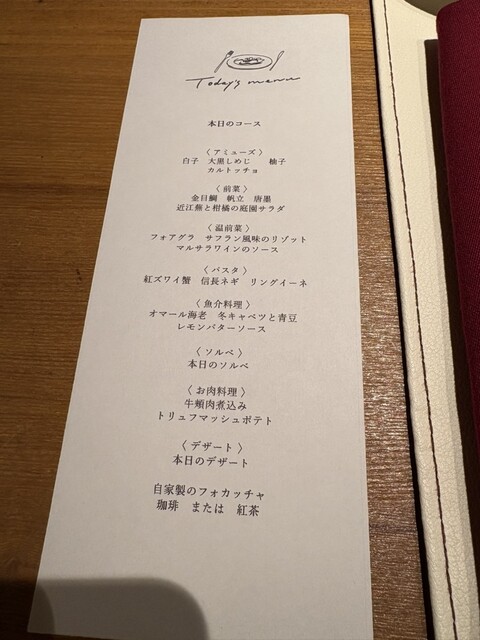 Today's menu
本日のコース
〈アミューズ〉
白子　大黒しめじ　柚子
カルトッチョ
〈前菜〉
金目鯛　帆立　唐墨
近江蕪と柑橘の庭園サラダ
〈温前菜〉
フォアグラ　サフラン風味のリゾット
マルサラワインのソース
〈パスタ〉
紅ズワイ蟹　信長ネギ　リングイーネ
〈魚介料理〉
オマール海老　冬キャベツと青豆
レモンバターソース
〈ソルベ〉
本日のソルベ
〈お肉料理〉
牛頬肉煮込み
トリュフマッシュポテト
〈デザート〉
本日のデザート
自家製のフォカッチャ
珈琲　または　紅茶